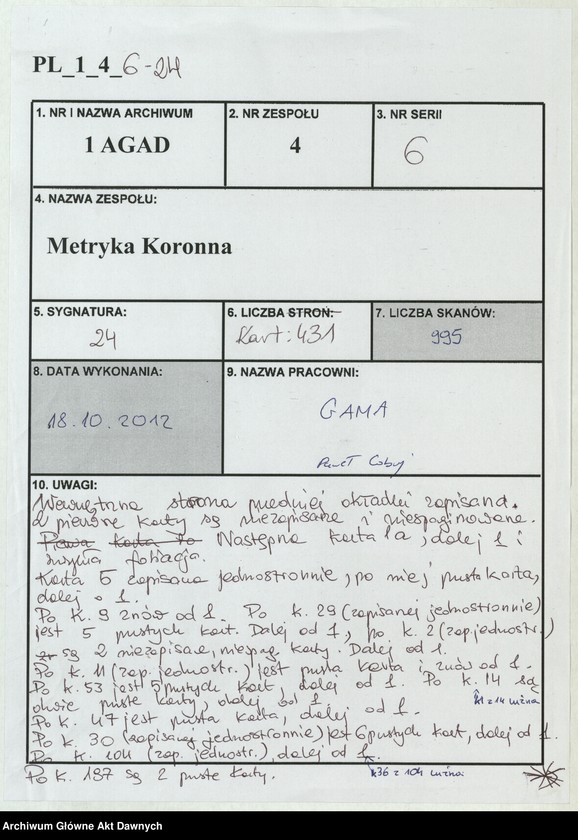 PL_1_4_6-24
1. NR I NAZWA ARCHIWUM
1 AGAD
2. NR ZESPOŁU
4
3. NR SERII
6
4. NAZWA ZESPOŁU:
Metryka Koronna
5. SYGNATURA:
24
6. LICZBA STRON:
Kart: 431
7. LICZBA SKANÓW:
995
8. DATA WYKONANIA:
18.10.2012
9. NAZWA PRACOWNI:
GAMA
Paweł
10. UWAGI:
Wewnętrzna strona przedniej okładki zapisana.
2 pierwsze karty są niezapisane i niespaginowane.
Karta Następna karta 1a, dalej 1 i
zwykła foliacja.
Karta 5 zapisana jednostronnie, po niej pusta karta,
dalej o 1.
Po k. 9 znów od 1. Po k. 29 (zapisanej jednostronnie)
jest 5 pustych kart. Dalej od 1, po k. 2 (zap. jednostr.)
są 2 niezapisane, niespag. karty. Dalej od 1.
Po k. 11 (zap. jednostr.) jest pusta karta i znów od 1.
Po k. 53 jest 5 pustych kart, dalej od 1. Po k. 14 są
puste karty, dalej od 1
k1 z 14 luźna
Po k. 47 jest pusta karta, dalej od 1.
Po k. 30 (zapisanej jednostronnie) jest 6 pustych kart, dalej od 1.
Po k. 104 (zap. jednostr.), dalej od 1.
k36 z 104 luźna.
Po k. 187 są 2 puste karty.
Archiwum Główne Akt Dawnych